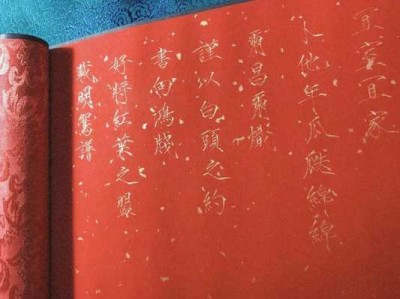 宜室宜家
卜他年瓜瓞綿綿
爾昌爾熾
謹以白頭之約
書向鴻箋
好將紅葉之盟
載明鴛譜